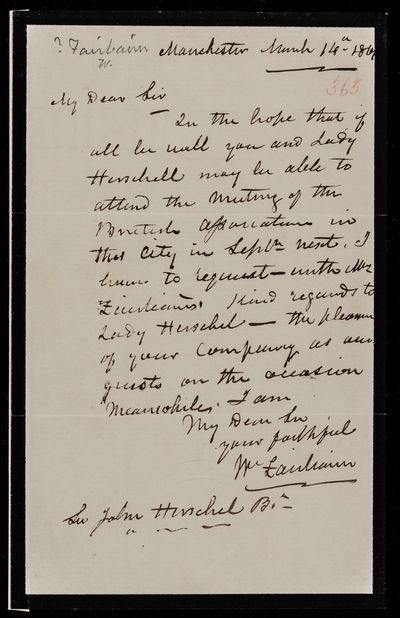 ? Fairbairn Manchester March 14th 1861
W.
563
My Dear Sir
In the hope that if
all be well you and Lady
Herschell may be able to
attend the Meeting of the
British Association in
this City in Septbr next. I
have to request – with Mrs
Fairbairns' kind regards to
Lady Herschel – the pleasure
of your Company as our
guests on the occasion
Meanwhile, I am
My Dear Sir
your faithful
Wm Fairbairn
Sir John Herschel Bt